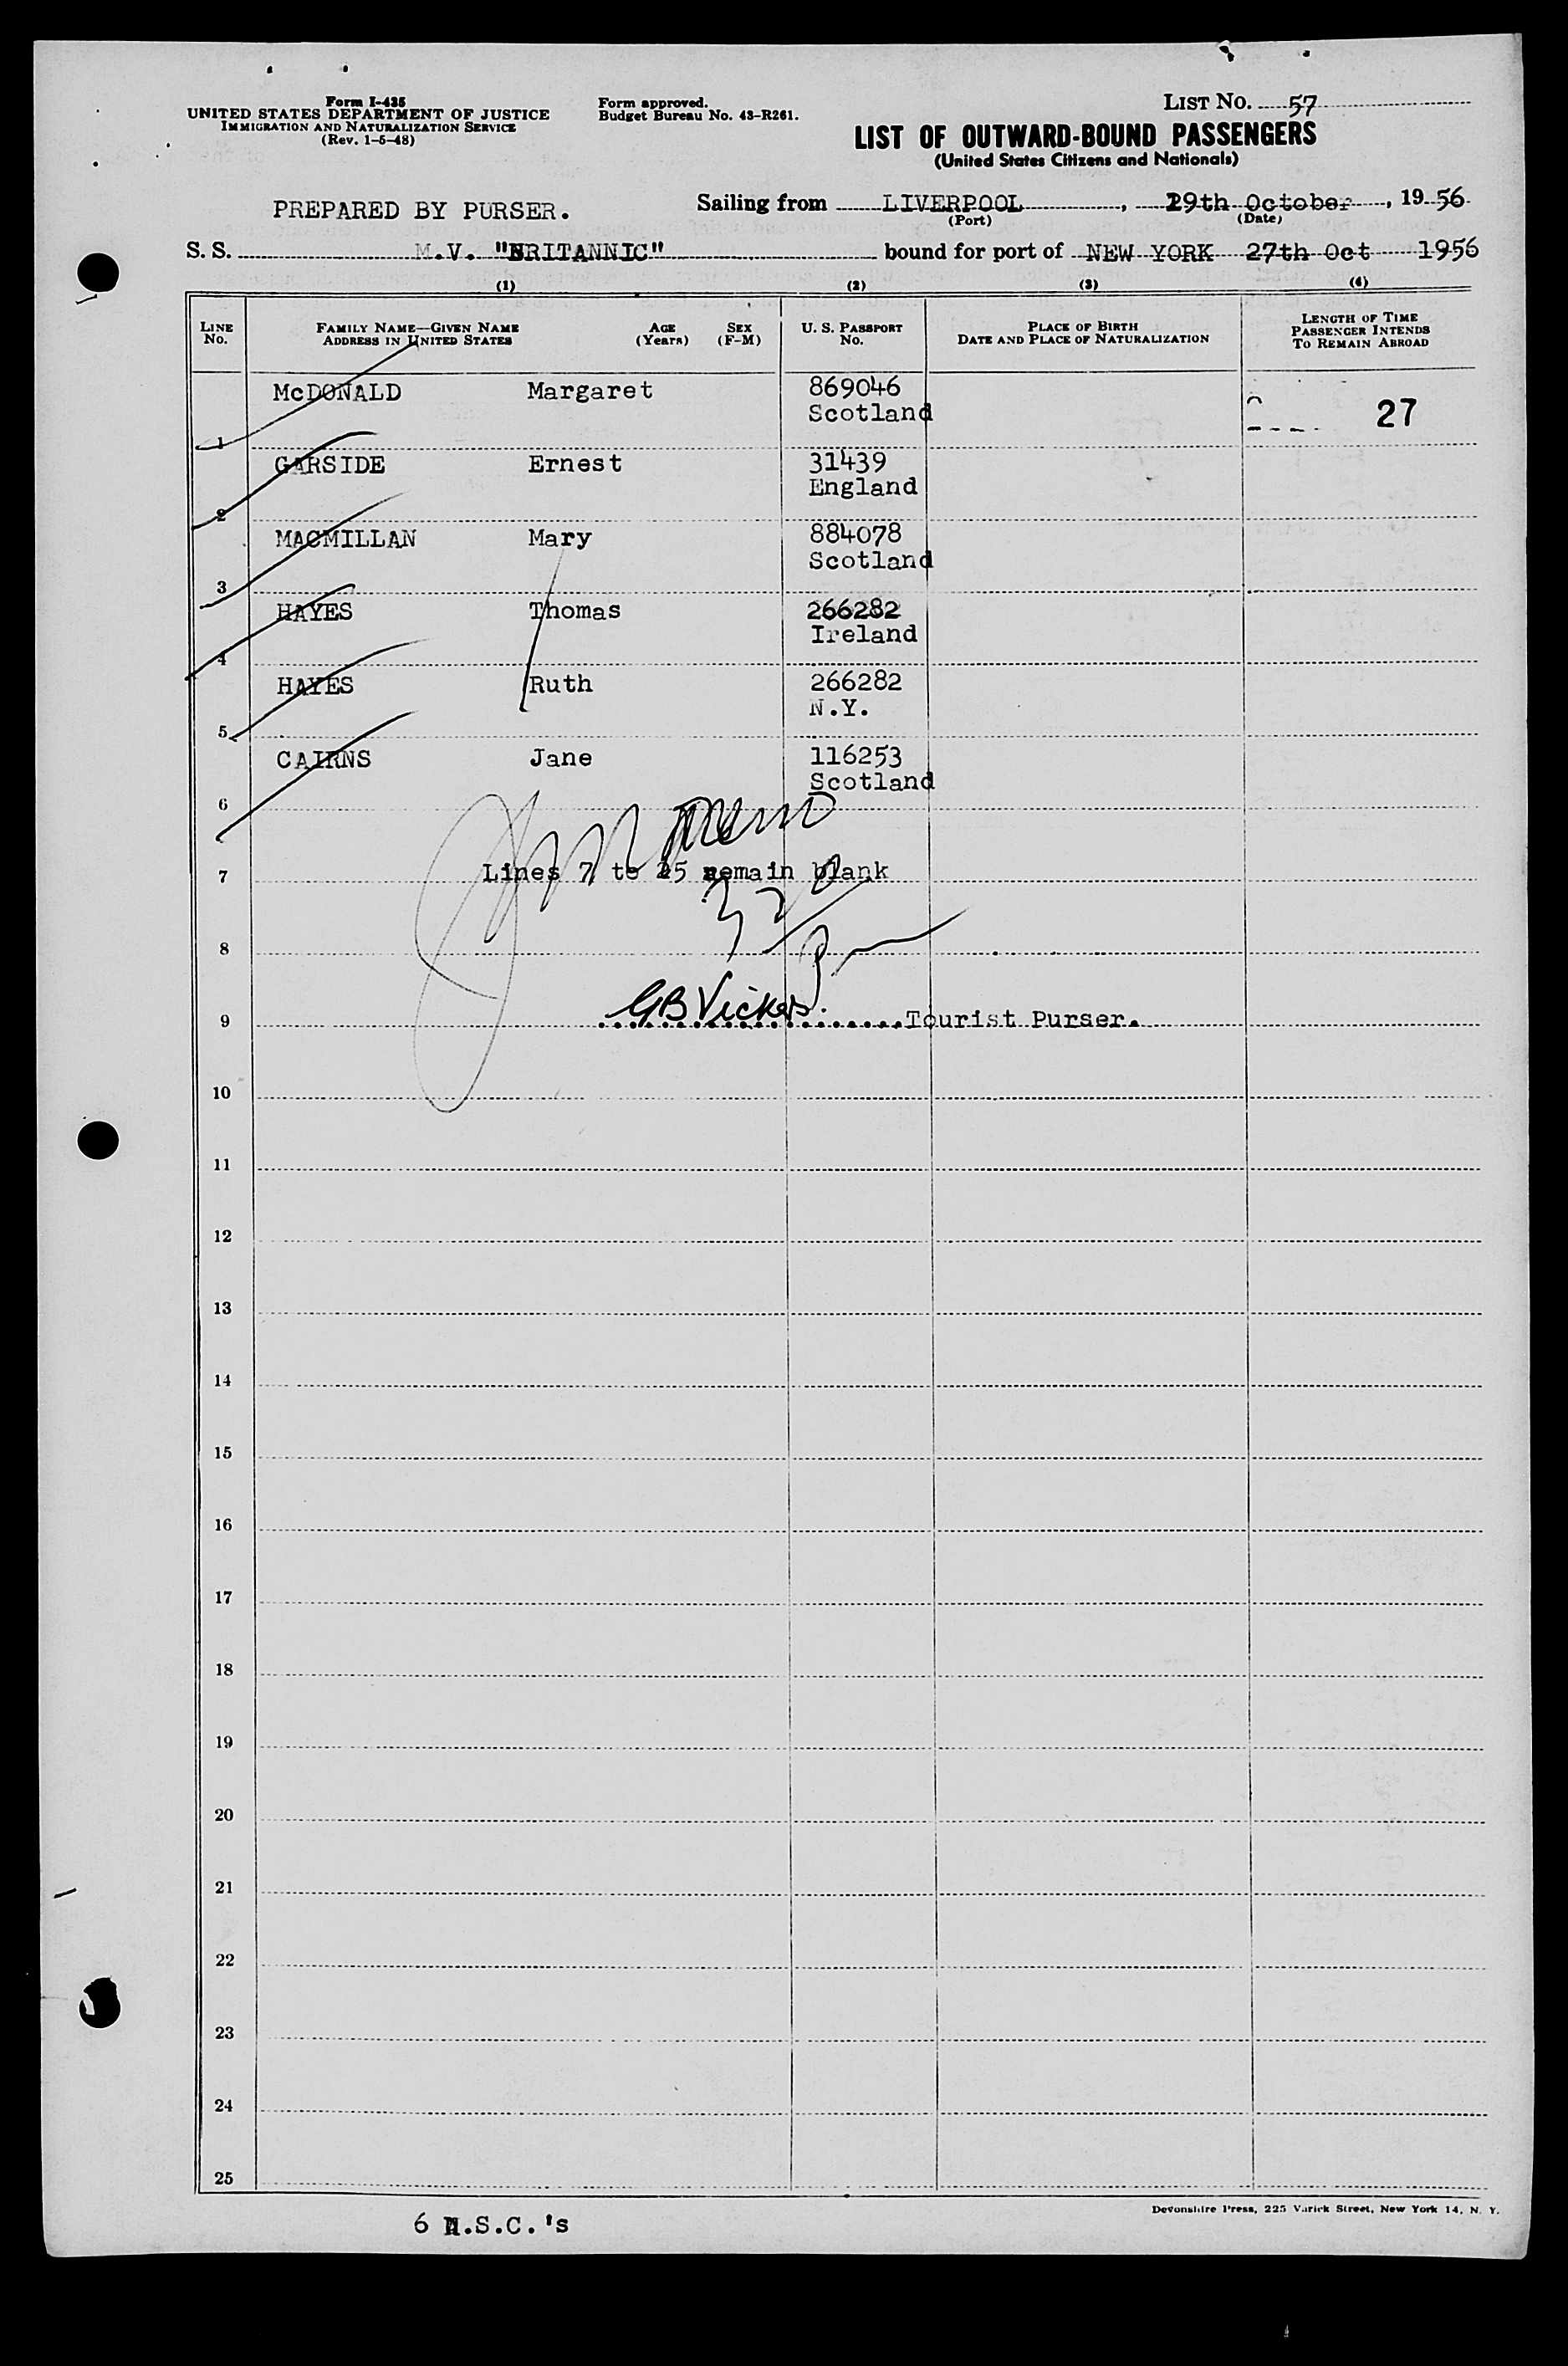 Form I-435
UNITED STATES DEPARTMENT OF JUSTICE
IMMIGRATION AND NATURALIZATION SERVICE
(Rev. 1-5-48)
Form approved.
Budget Bureau No. 43-R261.
LIST No. 57
LIST OF OUTWARD-BOUND PASSENGERS
(United States Citizens and Nationals)
PREPARED BY PURSER.
Sailing from LIVERPOOL, 19th October, 1956
(Port) (Date)
S. S. M.V. "BRITANNIC" bound for port of NEW YORK 27th Oct 1956
(1) (2) (3) (4)
LINE No.
FAMILY NAME—GIVEN NAME
ADDRESS IN UNITED STATES
AGE (Years)
SEX (F-M)
U. S. PASSPORT No.
PLACE OF BIRTH
DATE AND PLACE OF NATURALIZATION
LENGTH OF TIME
PASSENGER INTENDS
TO REMAIN ABROAD
McDONALD Margaret 869046
Scotland
27
1
GARSIDE Ernest 31439
England
2
MACMILLAN Mary 884078
Scotland
3
HAYES Thomas 266282
Ireland
4
HAYES Ruth 266282
N.Y.
5
CAIRNS Jane 116253
Scotland
6
Lines 7 to 25 remain blank
7
8
GB Vickers. Tourist Purser.
9
10
11
12
13
14
15
16
17
18
19
20
21
22
23
24
25
Devonshire Press, 225 Varick Street, New York 14, N. Y.
6 .S.C.'s